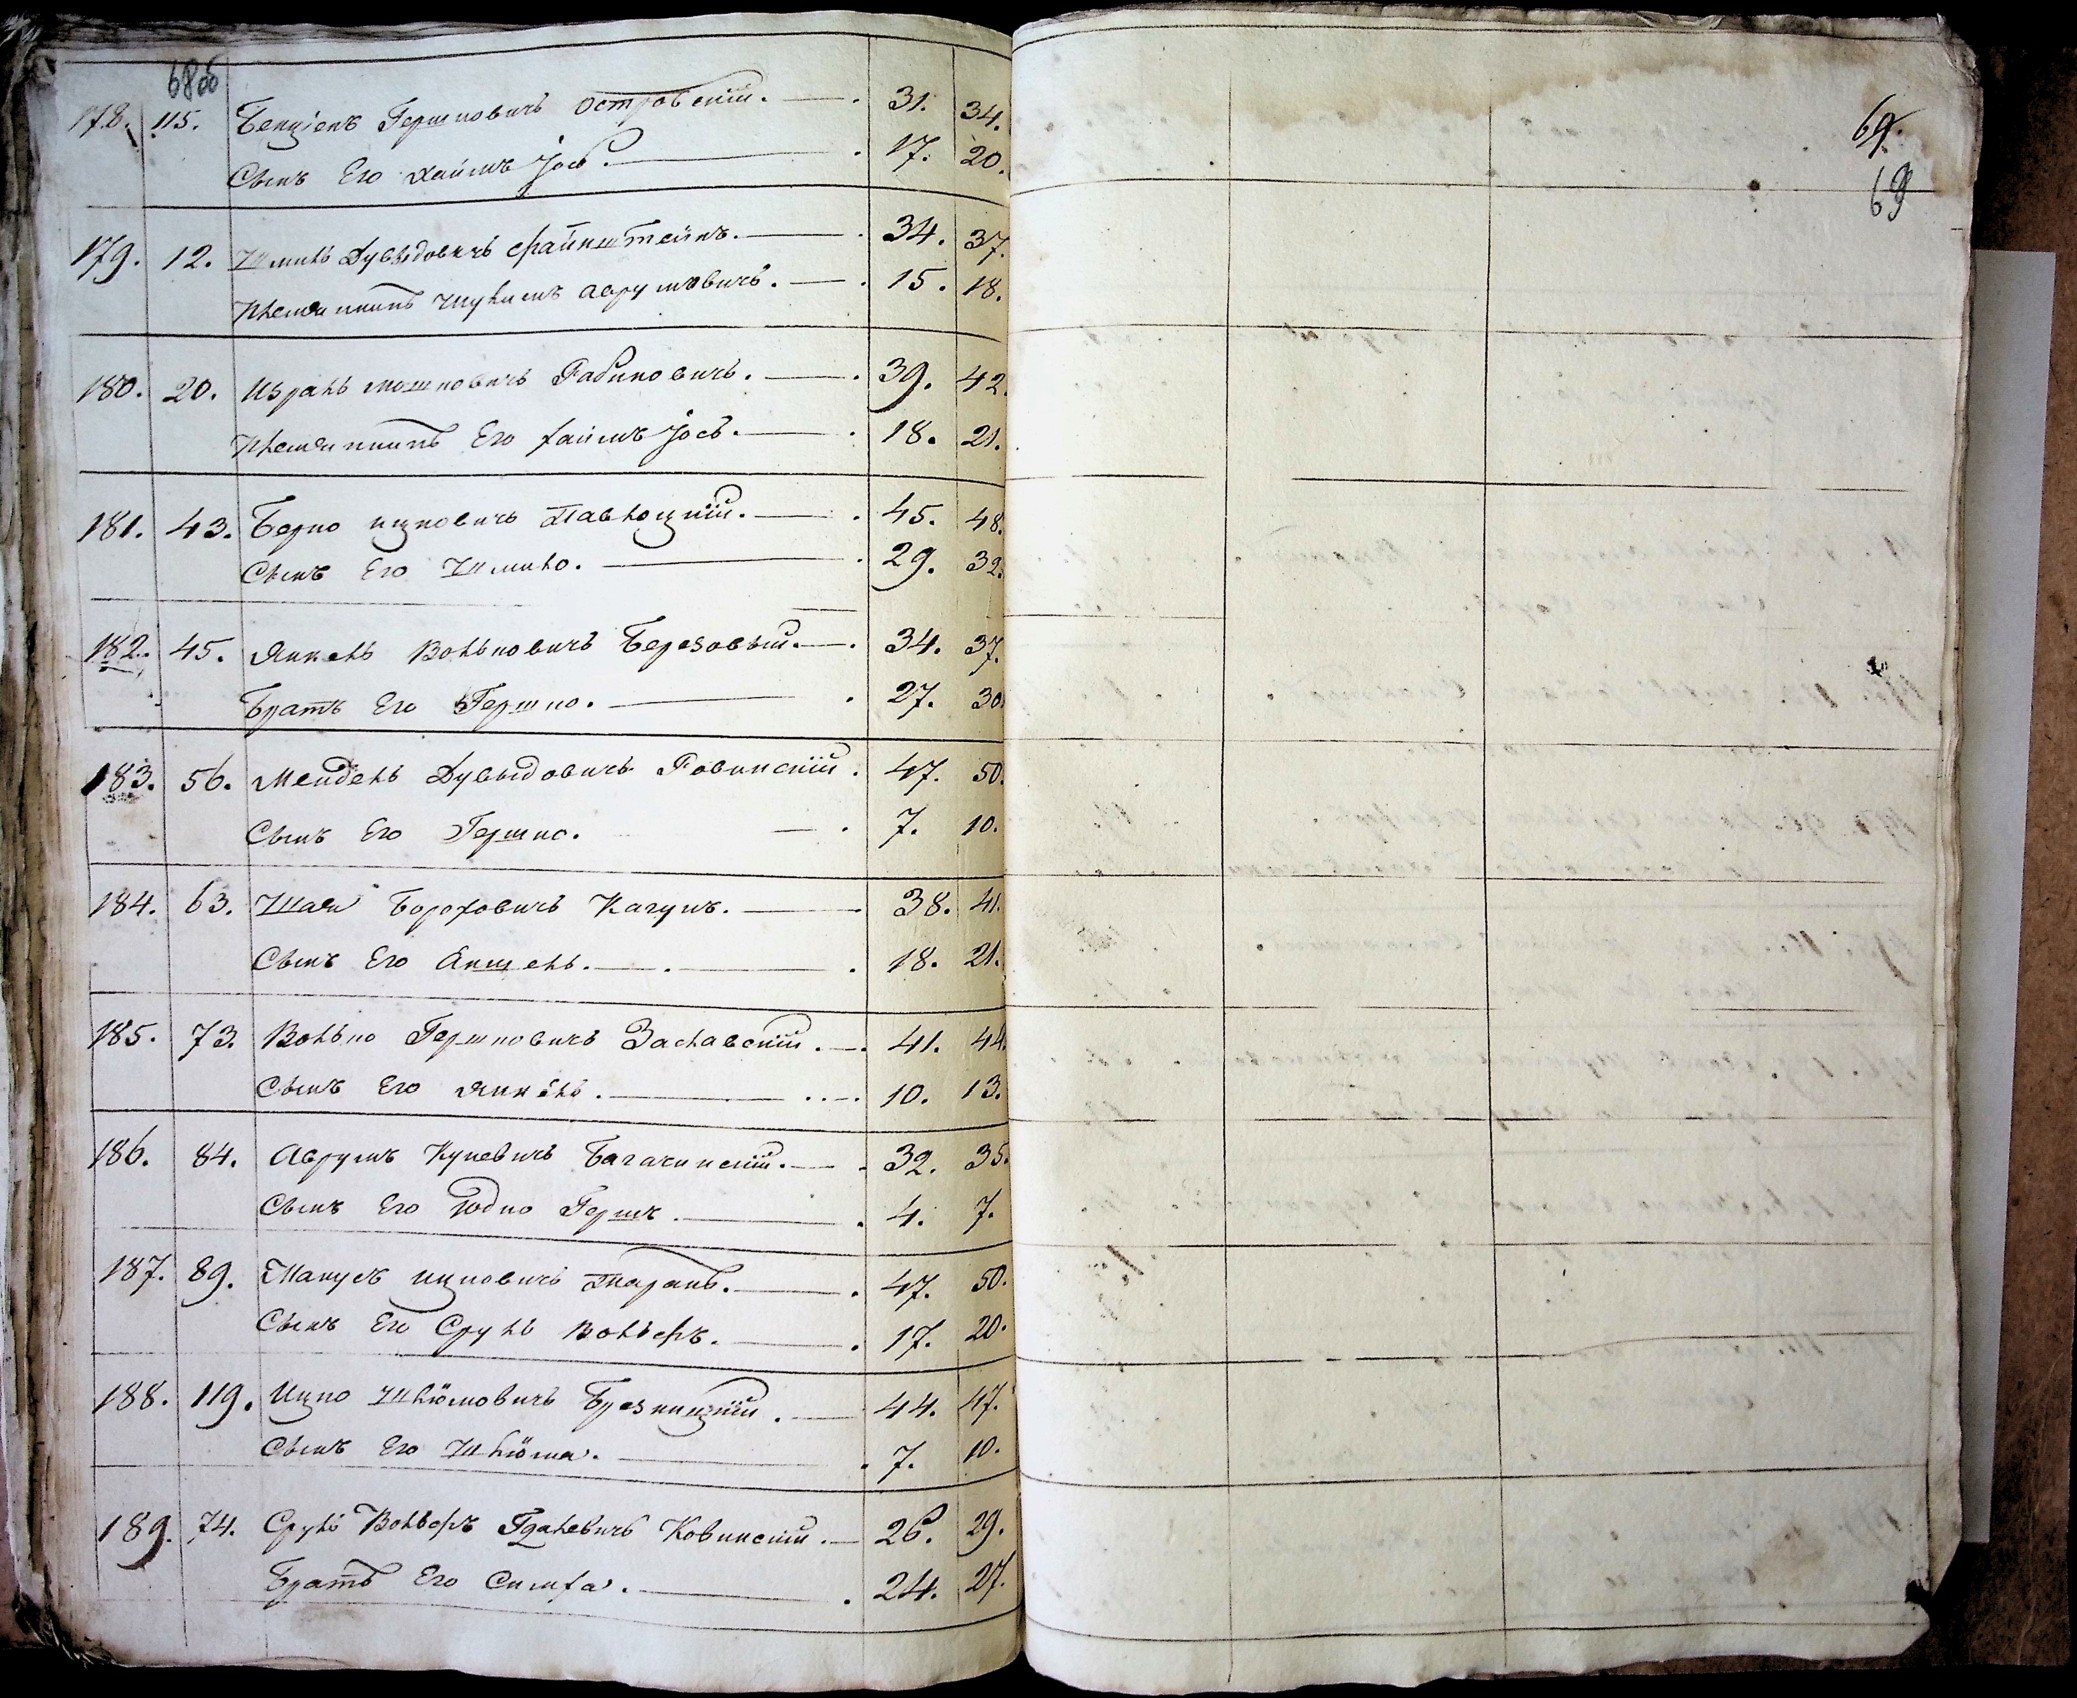 68об
178. 115. Бенціенъ Гершковичъ Островскій. 31. 34.
Сынъ Его Хаимъ Іось. 17. 20.
179. 12. Шмиль Дувыдовичъ Файнштейнъ. 34. 37.
Племянникъ Нухимъ Аврумовичъ. 15. 18.
180. 20. Израль Мошковичъ Рабиновичъ. 39. 42.
Племянникъ Его Хаимъ Іось. 18. 21.
181. 43. Берко Ицковичъ Павлоцкій. 45. 48.
Сынъ Его Шмило. 29. 32.
182. 45. Янкель Вольковичъ Березовый. 34. 37.
Братъ Его Гершко. 27. 30.
183. 56. Мендель Дувыдовичъ Ровинскій. 47. 50.
Сынъ Его Гершко. 7. 10.
184. 63. Шая Бороховичъ Качумъ. 38. 41.
Сынъ Его Аншель. 18. 21.
185. 73. Волько Гершковичъ Заславскій. 41. 44.
Сынъ Его Янкель. 10. 13.
186. 84. Аврумъ Куневичъ Багачинскій. 32. 35.
Сынъ Его Юдко Гершъ. 4. 7.
187. 89. Манусъ Ицковичъ Таранъ. 47. 50.
Сынъ Его Сруль Вольфъ. 17. 20.
188. 119. Ицко Шлёмовичъ Брезницкій. 44. 47.
Сынъ Его Шлёма. 7. 10.
189. 74. Сруль Вольфъ Гдалевичъ Ковинскій. 26. 29.
Братъ Его Симха. 24. 27.
69.
69